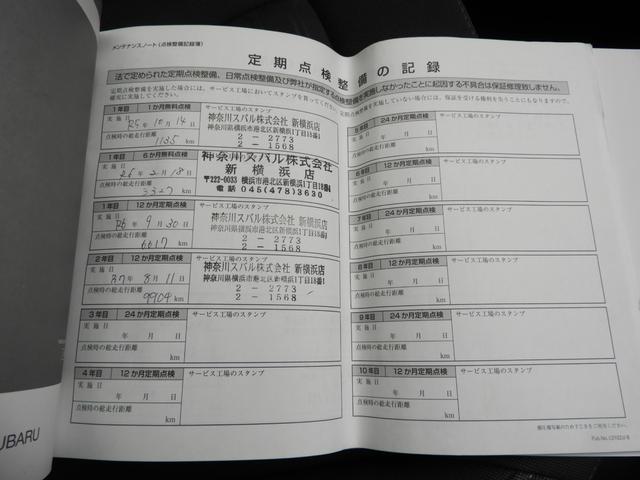 メンテナンスノート(点検整備記録簿)
定期点検整備の記録
法で定められた定期点検整備、日常点検整備及び弊社が指定する点検整備を実施しなかったことに起因する不具合は保証修理致しません。
定期点検整備を実施した場合には、サービス工場においてスタンプを貰ってください。定期点検整備を実施していない場合には、保証を受ける権利を失うことにもなりますので、
確実に実施してください。
1年目 1か月無料点検 サービス工場のスタンプ
実施日 R5年10月14日
点検時の総走行距離
1135 km
神奈川スバル株式会社 新横浜店
神奈川県横浜市港北区新横浜1丁目15番1
2-2773
2-1568
1年目 6か月無料点検
実施日 26年2月18日
点検時の総走行距離
3327 km
神奈川スバル株式会社
新横浜店
〒222-0033 横浜市港北区新横浜1丁目15番1
電話 045(478)3630
1年目 12か月定期点検 サービス工場のスタンプ
実施日 R6年9月30日
点検時の総走行距離
6617 km
神奈川スバル株式会社 新横浜店
神奈川県横浜市港北区新横浜1丁目15番1
2-2773
2-1568
2年目 12か月定期点検 サービス工場のスタンプ
実施日 27年8月11日
点検時の総走行距離
9904 km
神奈川スバル株式会社 新横浜店
神奈川県横浜市港北区新横浜1丁目15番1
2-2773
2-1568
3年目 24か月定期点検 サービス工場のスタンプ
実施日 年 月 日
点検時の総走行距離
km
4年目 12か月定期点検 サービス工場のスタンプ
実施日 年 月 日
点検時の総走行距離
km
5年目 24か月定期点検 サービス工場のスタンプ
実施日 年 月 日
点検時の総走行距離
km
6年目 12か月定期点検 サービス工場のスタンプ
実施日 年 月 日
点検時の総走行距離
km
7年目 24か月定期点検 サービス工場のスタンプ
実施日 年 月 日
点検時の総走行距離
km
8年目 12か月定期点検 サービス工場のスタンプ
実施日 年 月 日
点検時の総走行距離
km
9年目 24か月定期点検 サービス工場のスタンプ
実施日 年 月 日
点検時の総走行距離
km
10年目 12か月定期点検 サービス工場のスタンプ
実施日 年 月 日
点検時の総走行距離
km
UBARU